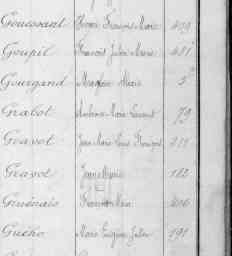 Goussard François Marie 409
Goupil François Julien Marie 481
Gourgand Marie 5
Grabot Ambroise Marie Laurent 79
Gravot Jean Marie Louis François 211
Gravot Jean Marie 182
Guénais François Marie 406
Guého Marie Eugène Julien 191